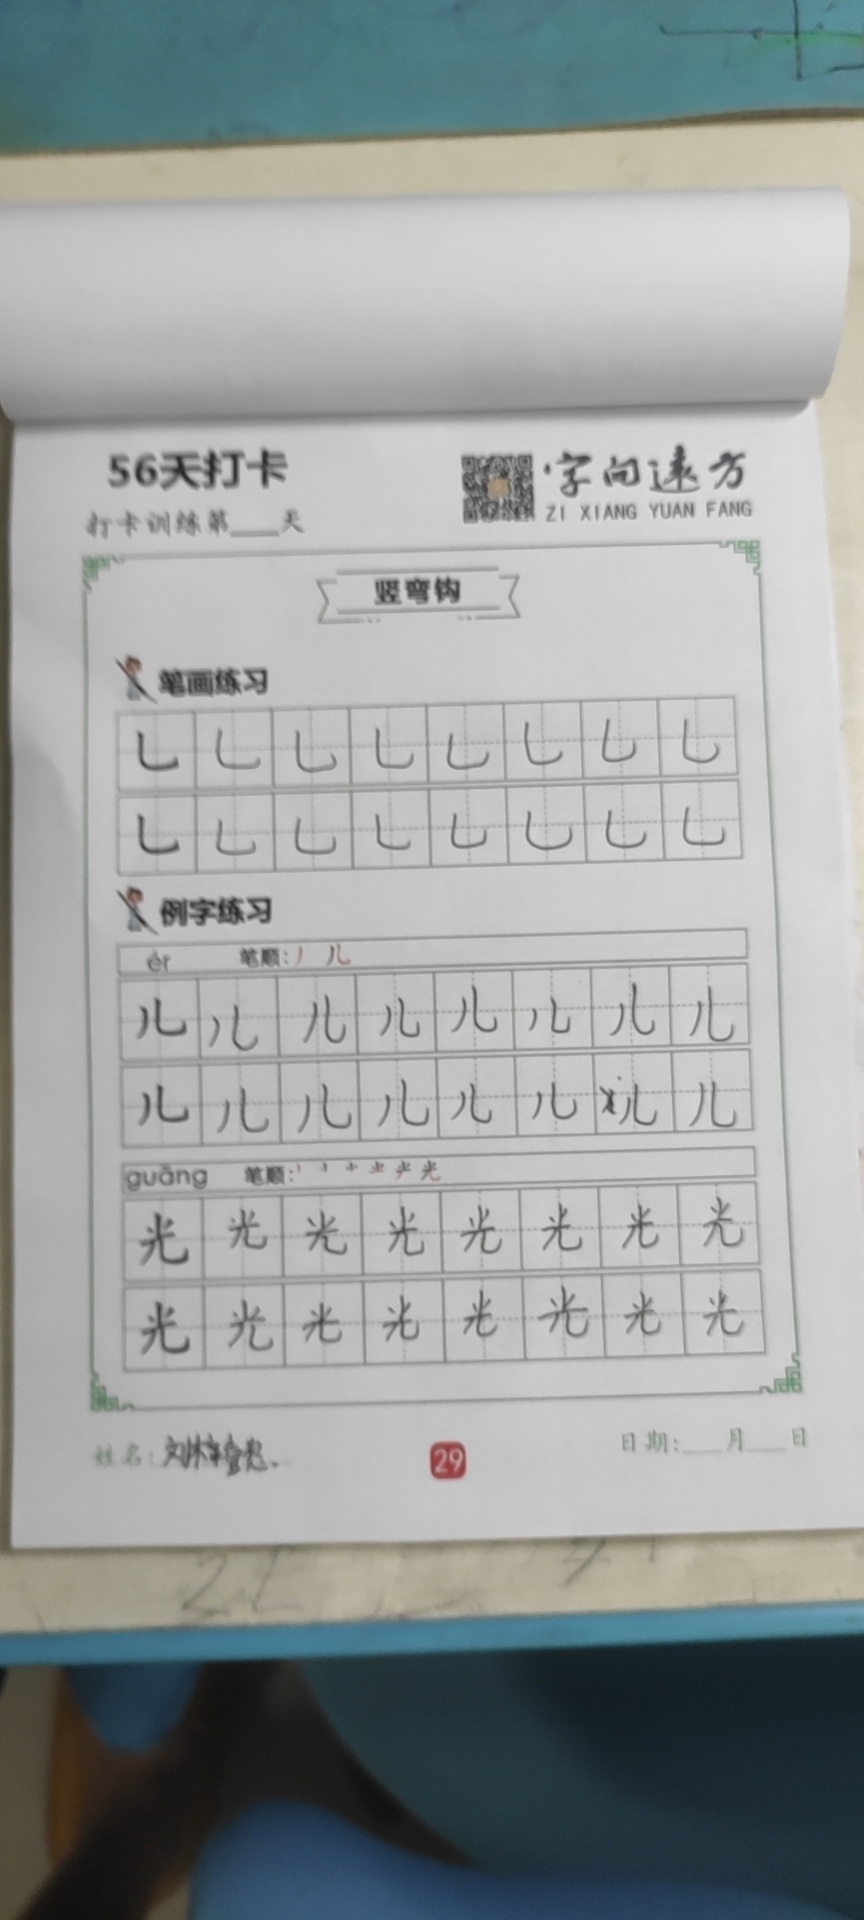 56天打卡
字向远方
打卡训练第___天
ZI XIANG YUAN FANG
竖弯钩
笔画练习
乚 乚 乚 乚 乚 乚 乚 乚
乚 乚 乚 乚 乚 乚 乚 乚
例字练习
ér 笔顺：丿 儿
儿 儿 儿 儿 儿 儿 儿 儿
儿 儿 儿 儿 儿 儿 儿 儿
guāng 笔顺：
光 光 光 光 光 光 光 光
光 光 光 光 光 光 光 光
姓名：刘林
29
日期：___月___日